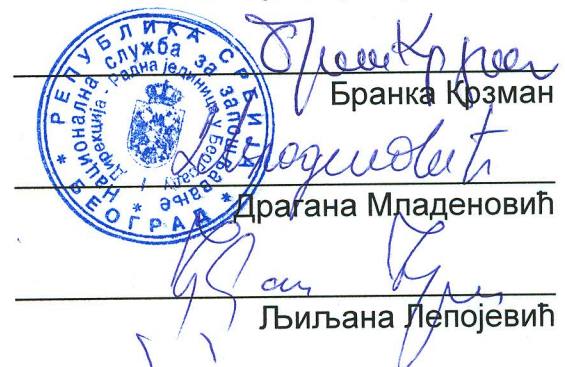 РЕПУБЛИКА СРБИЈА
Национална служба за запошљавање
Дирекција - Радна јединица у Београду
БЕОГРАД
Бранка Крзман
Драгана Младеновић
Љиљана Лепојевић